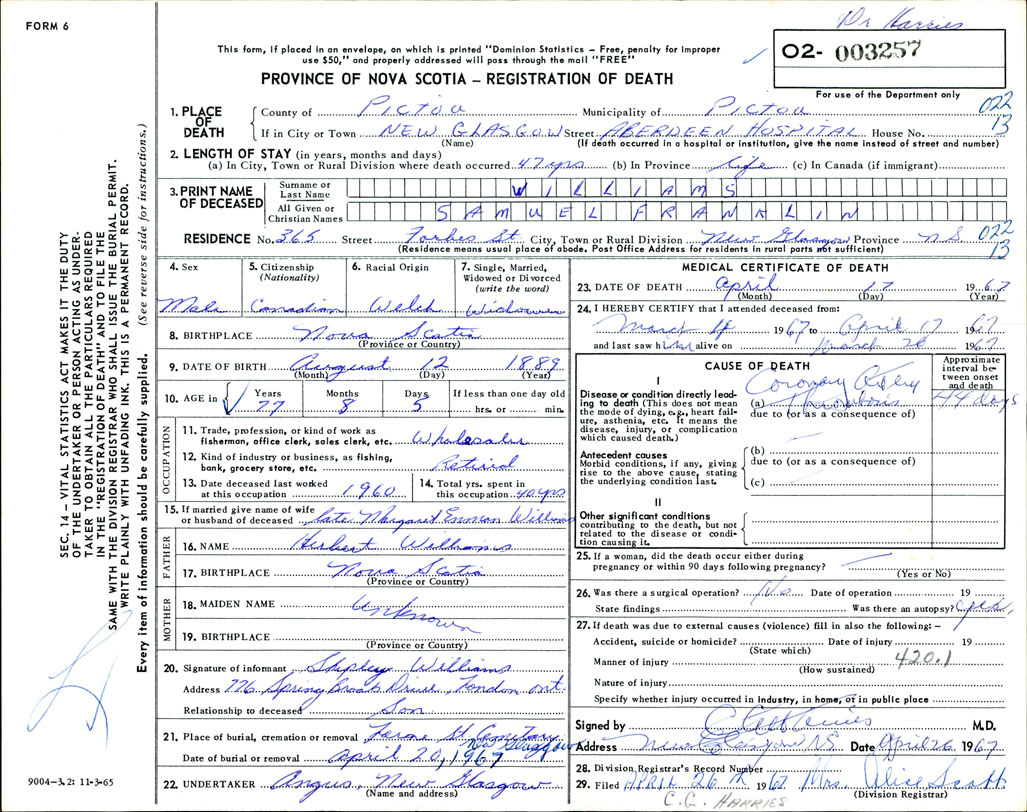 FORM 6
Dr Harries
This form, if placed in an envelope, on which is printed "Dominion Statistics – Free, penalty for improper
use $50," and properly addressed will pass through the mail "FREE"
O2- 003257
PROVINCE OF NOVA SCOTIA – REGISTRATION OF DEATH
For use of the Department only
022
13
1. PLACE OF DEATH
County of Pictou Municipality of Pictou
If in City or Town NEW GLASGOW Street ABERDEEN HOSPITAL House No.
(Name) (If death occurred in a hospital or institution, give the name instead of street and number)
2. LENGTH OF STAY (in years, months and days)
(a) In City, Town or Rural Division where death occurred 47 yrs (b) In Province Life (c) In Canada (if immigrant)
3. PRINT NAME OF DECEASED
Surname or Last Name WILLIAMS
All Given or Christian Names SAMUEL FRANKLIN
RESIDENCE No. 365 Street Forbes St. City, Town or Rural Division New Glasgow Province N S
(Residence means usual place of abode. Post Office Address for residents in rural parts not sufficient)
022
13
4. Sex
Male
5. Citizenship
(Nationality)
Canadian
6. Racial Origin
Welch
7. Single, Married,
Widowed or Divorced
(write the word)
Widower
8. BIRTHPLACE Nova Scotia
(Province or Country)
9. DATE OF BIRTH August 12 1889
(Month) (Day) (Year)
10. AGE in
Years
77
Months
8
Days
5
If less than one day old
hrs. or min.
OCCUPATION
11. Trade, profession, or kind of work as
fisherman, office clerk, sales clerk, etc. Wholesaler
12. Kind of industry or business, as fishing,
bank, grocery store, etc. Retired
13. Date deceased last worked
at this occupation 1960
14. Total yrs. spent in
this occupation 40 yrs
15. If married give name of wife
or husband of deceased late Margaret Williams
FATHER
16. NAME Herbert Williams
17. BIRTHPLACE Nova Scotia
(Province or Country)
MOTHER
18. MAIDEN NAME Unknown
19. BIRTHPLACE
(Province or Country)
20. Signature of informant Shipley Williams
Address 776 Springbrook Drive, London ont.
Relationship to deceased Son
21. Place of burial, cremation or removal Cemetary
New Glasgow
Date of burial or removal April 20, 1967
22. UNDERTAKER Angus, New Glasgow
(Name and address)
MEDICAL CERTIFICATE OF DEATH
23. DATE OF DEATH April 17 1967
(Month) (Day) (Year)
24. I HEREBY CERTIFY that I attended deceased from:
March 4 1967 to April 17 1967
and last saw him alive on March 28 1967
CAUSE OF DEATH
Approximate
interval be-
tween onset
and death
I
Disease or condition directly lead-
ing to death (This does not mean
the mode of dying, e.g., heart fail-
ure, asthenia, etc. It means the
disease, injury, or complication
which caused death.)
(a) Coronary Artery Thrombosis
44 days
due to (or as a consequence of)
Antecedent causes
Morbid conditions, if any, giving
rise to the above cause, stating
the underlying condition last.
(b)
due to (or as a consequence of)
(c)
II
Other significant conditions
contributing to the death, but not
related to the disease or condi-
tion causing it.
25. If a woman, did the death occur either during
pregnancy or within 90 days following pregnancy?
(Yes or No)
26. Was there a surgical operation? No Date of operation 19
State findings Was there an autopsy? yes.
27. If death was due to external causes (violence) fill in also the following: –
Accident, suicide or homicide? Date of injury 19
(State which)
Manner of injury 420.1
(How sustained)
Nature of injury
Specify whether injury occurred in industry, in home, or in public place
Signed by M.D.
Address New Glasgow NS. Date April 26 1967
28. Division Registrar's Record Number
29. Filed APRIL 26 th 1967 Mrs. Alice Scott
(Division Registrar)
C.G. HARRIES
SEC. 14 – VITAL STATISTICS ACT MAKES IT THE DUTY
OF THE UNDERTAKER OR PERSON ACTING AS UNDER-
TAKER TO OBTAIN ALL THE PARTICULARS REQUIRED
IN THE "REGISTRATION OF DEATH" AND TO FILE THE
SAME WITH THE DIVISION REGISTRAR WHO SHALL ISSUE THE BURIAL PERMIT.
WRITE PLAINLY WITH UNFADING INK. THIS IS A PERMANENT RECORD.
Every item of information should be carefully supplied. (See reverse side for instructions.)
9004-3.2: 11-3-65